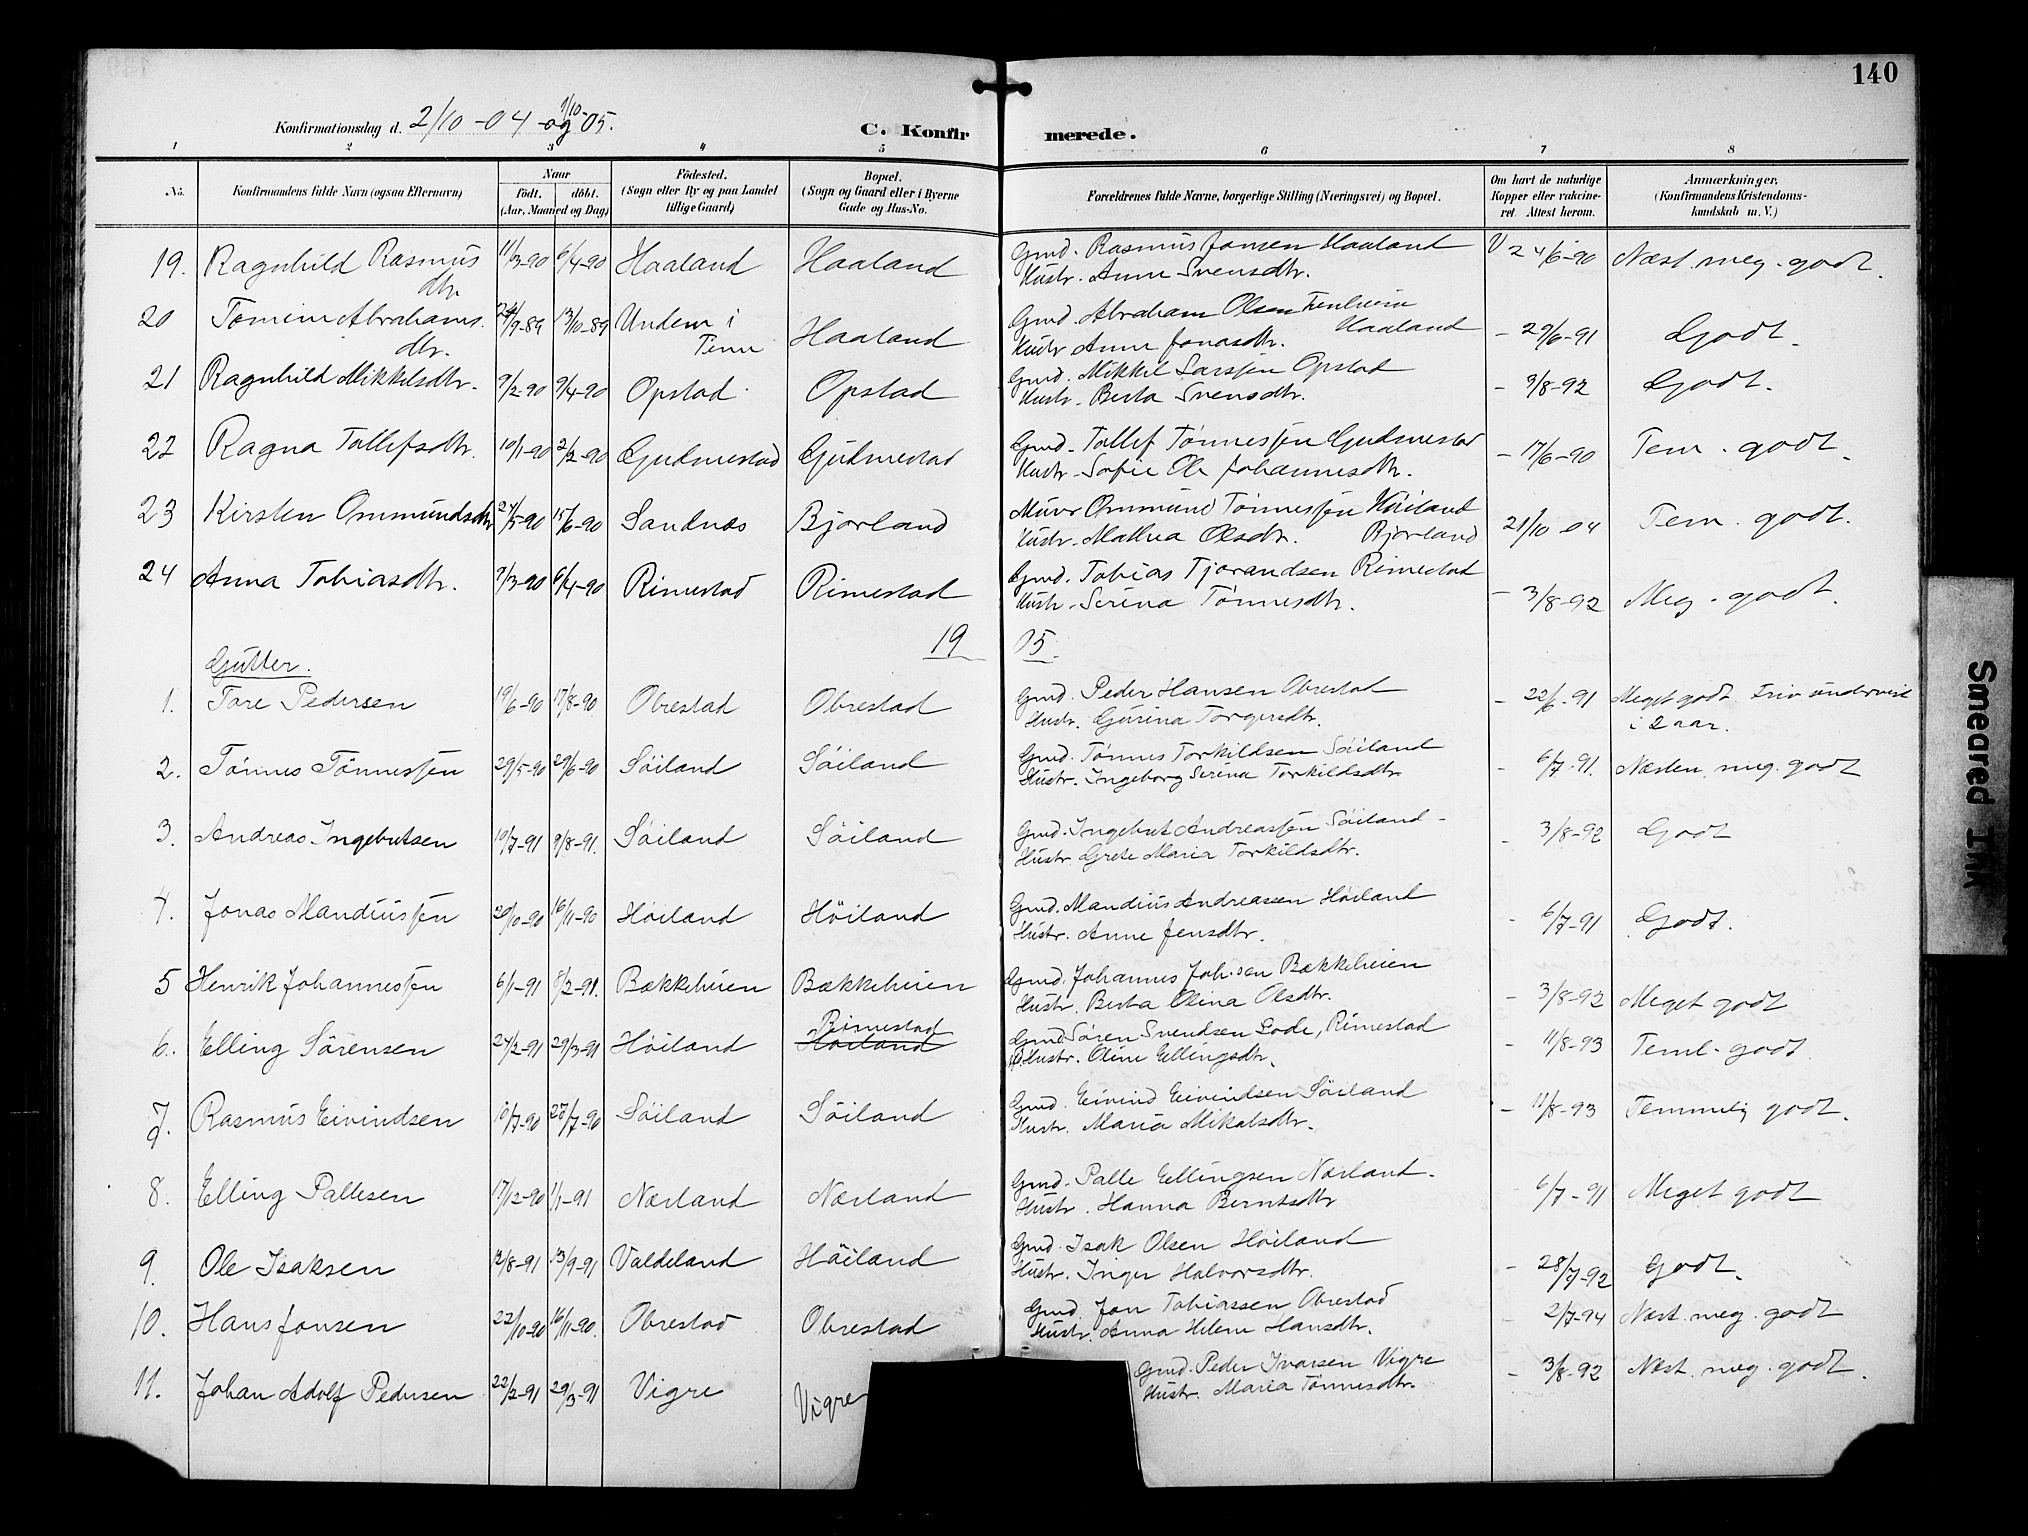 140
Konfirmationsdag d. 2/10 -04 og 1/10 05.
C. Konfirmerede.
1 2 3 4 5 6 7 8
No. Konfirmandens fulde Navn (ogsaa Efternavn) Naar født. døbt. (Aar, Maaned og Dag) Fødested. (Sogn eller By og paa Landet tillige Gaard) Bopæl. (Sogn og Gaard eller i Byerne Gade og Hus-No. Forældrenes fulde Navne, borgerlige Stilling (Næringsvei) og Bopæl. Om havt de naturlige Kopper eller vaccineret. Attest herom. Anmærkninger. (Konfirmandens Kristendomskundskab m. V.)
19. Ragnhild Rasmus dtr. 11/3-90 6/4-90 Haaland Haaland Gmd. Rasmus Jonsen Haaland V 24/6-90 Næst. meg. godt.
Hustr. Anne Svensdtr.
20 Abrahams dtr. 13/10-89 i Haaland Gmd. Abraham Olsen Haaland - 29/6-91 Godt.
Hustr Anne Jonasdtr.
21 Ragnhild Mikkelsdtr. 9/2-90 9/4-90 Opstad Opstad Gmd. Mikkel Larssen Opstad - 9/8-92 Godt.
Hustr. Berta Svensdtr.
22 Ragna Tollefsdtr. 10/1-90 2/2-90 Gudmestad Gudmestad Gmd. Tollef Tønnessen Gudmestad - 17/6-90 Tem. godt.
Hustr. Sofie Ol Johannesdtr.
23 Kirsten Ommundsdtr 27/5-90 15/6-90 Sandnæs Bjorland Murer Ommund Tønnessen Høiland 21/10-04 Tem. godt.
Hustr. Mathea Olsdtr. Bjorland
24 Anna Tobiasdtr. 7/3-90 6/4-90 Rimestad Rimestad Gmd. Tobias Tjorandsen Rimestad - 3/8-92 Meg. godt.
Hustr. Serina Tønnesdtr.
19 05.
Gutter.
1. Tore Pedersen 19/6-90 17/8-90 Obrestad Obrestad Gmd. Peder Hansen Obrestad - 22/6-91 Meget godt.
Hustr. Gurina Torgersdtr. i 2 aar.
2. Tønnes Tønnessen 29/5-90 29/6-90 Søiland Søiland Gmd. Tønnes Torkildsen Søiland - 6/7-91. Næsten meg. godt
Hustr. Ingeborg Serina Torkildsdtr
3. Andreas Ingebretsen 19/7-91 9/8-91. Søiland Søiland Gmd. Ingebret Andreassen Søiland - 3/8-92 Godt
Hustr. Grete Maria Torkildsdtr.
4. Jonas Mandiussen 20/10-90 16/11-90 Høiland Høiland Gmd. Mandius Andreassen Høiland - 6/7-91 Godt.
Hustr. Anne Jensdtr.
5 Henrik Johannessen 6/1-91 8/2-91. Bækkeheien Bækkeheien Gmd. Johannes Joh.sen Bækkeheien - 3/8-92 Meget godt
Hustr. Berta Olina Olsdtr.
6. Elling Sørensen 24/2-91 29/3-91 Høiland Høiland Rimestad Gmd Søren Svendsen Lode, Rimestad - 11/8-93 Teml. godt
Hustr. Oline Ellingsdtr.
7. Rasmus Eivindsen 10/7-90 28/7-90 Søiland Søiland Gmd. Eivind Eivindsen Søiland - 11/8-93 Temmelig godt.
Hustr. Maria Mikalsdtr.
8. Elling Pallesen 17/12-90 1/1-91 Nærland Nærland Gmd. Palle Ellingsen Nærland. - 6/7-91 Meget godt
Hustr. Hanna Berntsdtr
9. Ole Isaksen 12/8-91 13/9-91 Valdeland Høiland Gmd. Isak Olsen Høiland - 28/7-92 Godt.
Hustr. Inger Halvorsdtr.
10. Hans Jonsen 22/10-90 16/11-90. Obrestad Obrestad Gmd. Jon Tobiassen Obrestad - 2/7-94 Næst. meg. godt
Hustr. Anna Helene Hansdtr.
11. Johan Adolf Pedersen 22/2-91 29/3-91 Vigre Vigre Gmd. Peder Ivarsen Vigre - 3/8-92 Næst. meg. godt.
Hustr. Maria Tønnesdtr.
Smeared Ink